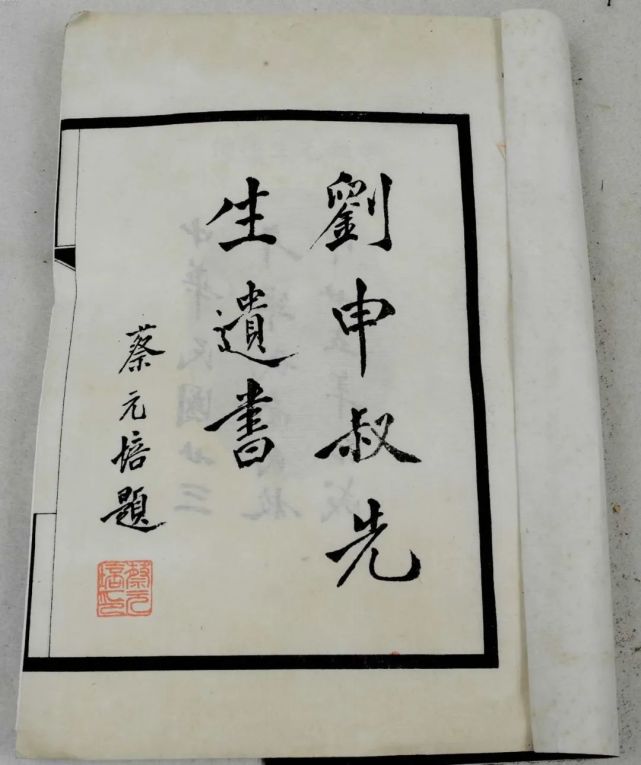 劉申叔先
生遺書
蔡元培題
蔡元培印